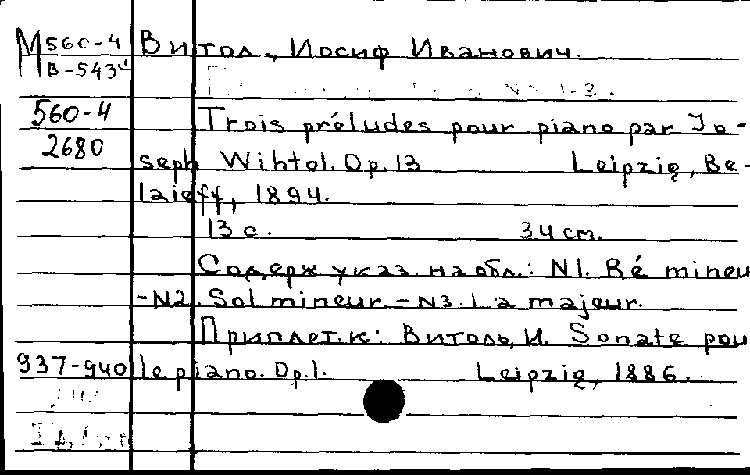 М 560-4 Витол, Иосиф Иванович.
В-543
№ 1-3.
560-4 Trois préludes pour piano par Jo-
2680 seph Wihtol. Op. 13 Leipzig, Be-
laieff, 1894.
13 с. 34 cm.
Содерж указ. на обл.: N1. Ré mineu
-N2. Sol mineur.-N3. La majeur.
Приплет. к: Витоль, И. Sonate pou
937-940 le piano. Op. 1. Leipzig, 1886.